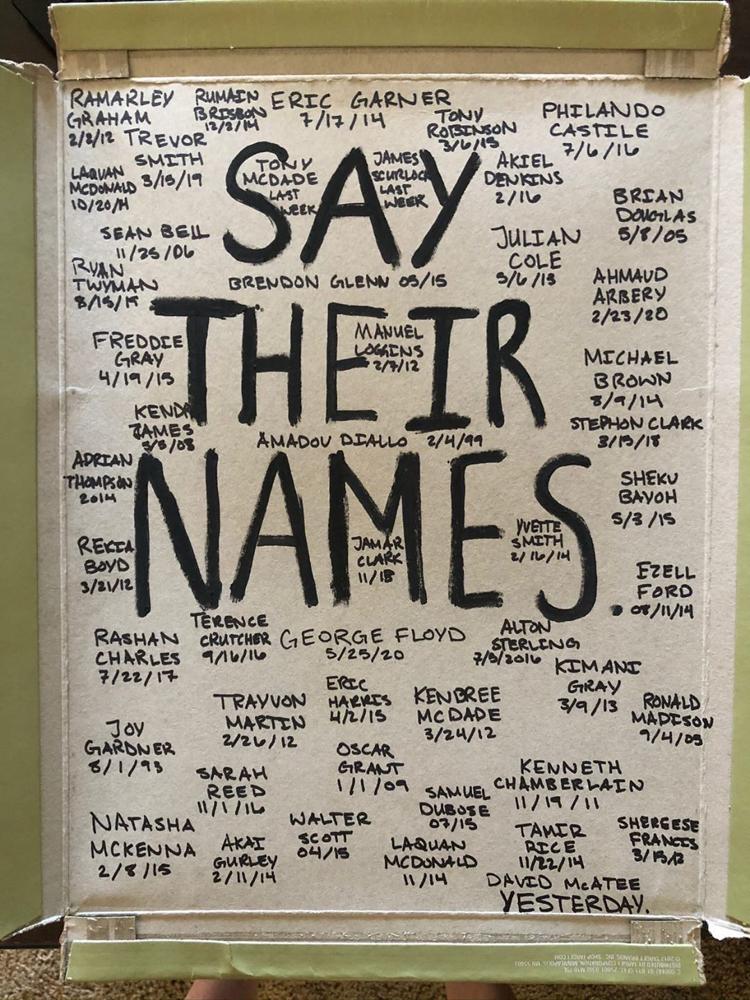 RAMARLEY
GRAHAM
2/2/12
RUMAIN
BRISBON
12/2/14
ERIC GARNER
7/17/14
TONY
ROBINSON
3/6/15
PHILANDO
CASTILE
7/6/16
TREVOR
SMITH
3/15/19
LAQUAN
MCDONALD
10/20/14
TONY
MCDADE
LAST
WEEK
JAMES
SCURLOCK
LAST
WEEK
AKIEL
DENKINS
2/16
BRIAN
DOUGLAS
5/8/05
SAY
SEAN BELL
11/25/06
JULIAN
COLE
5/6/13
RYAN
TWYMAN
8/15/15
BRENDON GLENN 05/15
AHMAUD
ARBERY
2/23/20
THEIR
FREDDIE
GRAY
4/19/15
MANUEL
LOGGINS
2/7/12
MICHAEL
BROWN
8/9/14
KENDRA
JAMES
5/5/03
AMADOU DIALLO 2/4/99
STEPHON CLARK
3/18/18
ADRIAN
THOMPSON
2014
NAMES.
SHEKU
BAYOH
5/3/15
REKIA
BOYD
3/21/12
JAMAR
CLARK
11/15
YVETTE
SMITH
2/16/14
EZELL
FORD
08/11/14
RASHAN
CHARLES
7/22/17
TERENCE
CRUTCHER
9/16/16
GEORGE FLOYD
5/25/20
ALTON
STERLING
7/5/2016
KIMANI
GRAY
3/9/13
TRAYVON
MARTIN
2/26/12
ERIC
HARRIS
4/2/15
KENDREE
MCDADE
3/24/12
RONALD
MADISON
9/4/05
JOY
GARDNER
8/1/93
OSCAR
GRANT
1/1/09
SARAH
REED
11/1/16
SAMUEL
DUBOSE
07/15
KENNETH
CHAMBERLAIN
11/19/11
NATASHA
MCKENNA
2/8/15
AKAI
GURLEY
2/11/14
WALTER
SCOTT
04/15
LAQUAN
MCDONALD
11/14
TAMIR
RICE
11/22/14
SHEREESE
FRANCIS
3/15/12
DAVID McATEE
YESTERDAY.